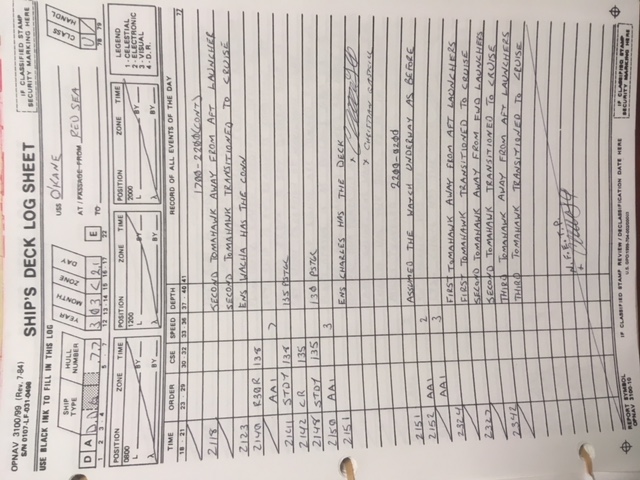 OPNAV 3100/99 (Rev. 7-84)
S/N 0107-LF-031-0498
SHIP'S DECK LOG SHEET
IF CLASSIFIED STAMP
SECURITY MARKING HERE
USE BLACK INK TO FILL IN THIS LOG
SHIP TYPE HULL NUMBER YEAR MONTH ZONE DAY
USS O'KANE
CLASS HANDL
D A D.D.G 77 3 03 C 21 E
AT / PASSAGE FROM RED SEA
TO
U
1 2 3 - 4 5 - 7 12 13 14 15 16-17 22 78 79
POSITION ZONE TIME
0800
L BY
λ BY
POSITION ZONE TIME
1200
L BY
λ BY
POSITION ZONE TIME
2000
L BY
λ BY
LEGEND
1 - CELESTIAL
2 - ELECTRONIC
3 - VISUAL
4 - D. R.
TIME ORDER CSE SPEED DEPTH RECORD OF ALL EVENTS OF THE DAY
18 - 21 23 - 29 30 - 32 33 - 36 37 - 40 41 77
1700-2200 (CONT)
2118 SECOND TOMAHAWK AWAY FROM AFT LAUNCHER
SECOND TOMAHAWK TRANSITIONED TO CRUISE
2123 ENS WACHA HAS THE CONN
2140 R30R 138
AA1 7
2141 STDY 138 135 PSTGC
2142 CR 135
2148 STDY 135 130 PSTGC
2150 AA1 3
2151 ENS CHARLES HAS THE DECK
CHRISTIAN GASKILL
2200-0200
2151 ASSUMED THE WATCH UNDERWAY AS BEFORE
2152 AA1 2
AA1 3
2324 FIRST TOMAHAWK AWAY FROM AFT LAUNCHERS
FIRST TOMAHAWK TRANSITIONED TO CRUISE
2327 SECOND TOMAHAWK AWAY FROM FWD LAUNCHERS
SECOND TOMAHAWK TRANSITIONED TO CRUISE
2342 THIRD TOMAHAWK AWAY FROM AFT LAUNCHERS
THIRD TOMAHAWK TRANSITIONED TO CRUISE
N.F.E.T.P.
REPORT SYMBOL
OPNAV 3100-10
IF CLASSIFIED STAMP REVIEW / DECLASSIFICATION DATE HERE
IF CLASSIFIED STAMP
SECURITY MARKING HERE